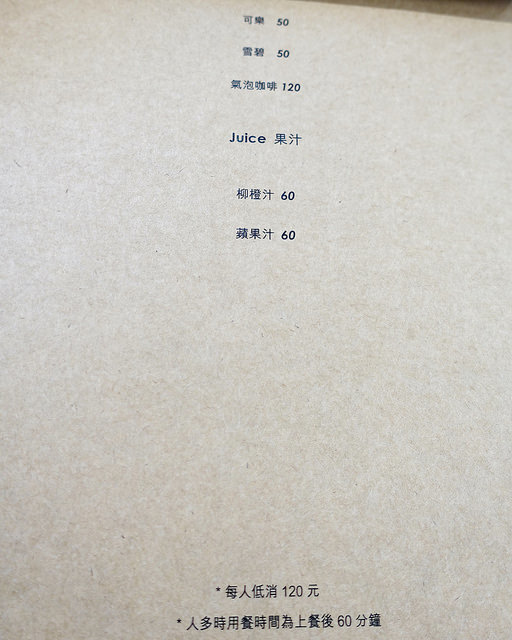 可樂 50
雪碧 50
氣泡咖啡 120
Juice 果汁
柳橙汁 60
蘋果汁 60
* 每人低消 120 元
* 人多時用餐時間為上餐後 60 分鐘